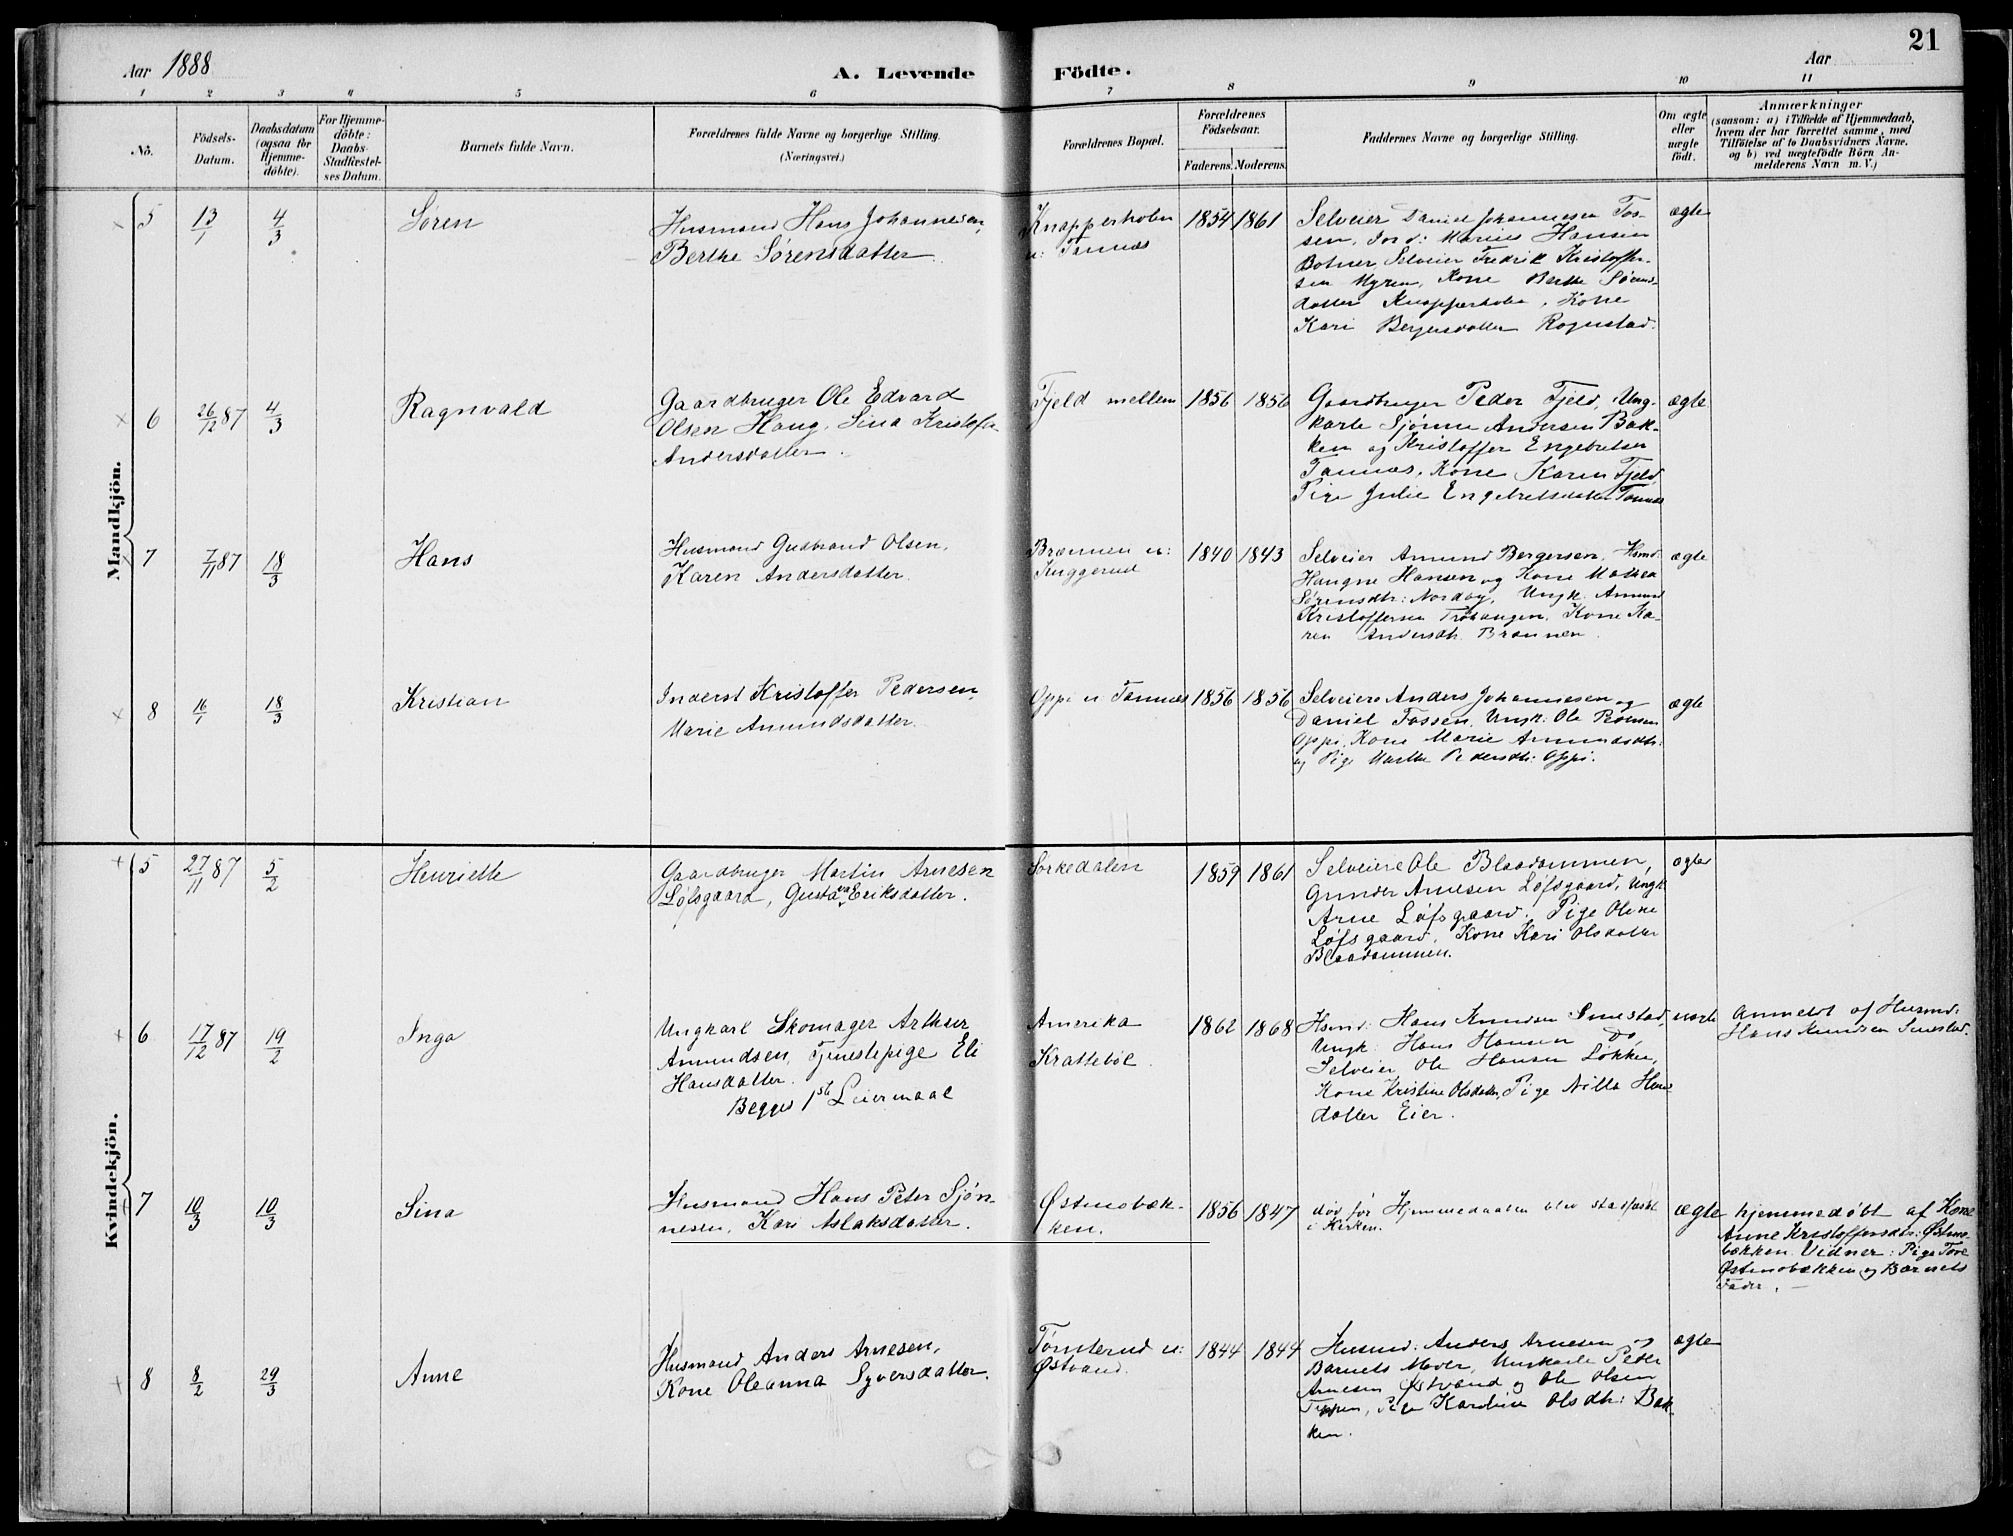 Aar 1888
A. Levende
Födte.
Aar
21
1 2 3 4 5 6 7 8 9 10 11
Nö.
Födsels-Datum.
Daabsdatum (ogsaa for Hjemme-döbte).
For Hjemme-döbte: Daabs-Stadfæstel-ses Datum.
Barnets fulde Navn.
Forældrenes fulde Navne og borgerlige Stilling.
(Næringsvei.)
Forældrenes Bopæl.
Forældrenes Födselsaar.
Faderens. Moderens.
Faddernes Navne og borgerlige Stilling.
Om ægte eller uægte födt.
Anmærkninger
(saasom: a) i Tilfælde af Hjemmedaab,
hvem der har forrettet samme, med
Tilföielse af to Daabsvidners Navne.
og b) ved uægtefödte Börn An-
melderens Navn m. V.)
Mandkjön.
5 13/1 4/3 Søren
Husmand Hans Johannesen,
Berthe Sørensdatter
Knapperholen
u: Tannæs
1854 1861
Selveier Daniel Johannesen Tos-
sen, Ind: Marius Hansen
Botner, Selveier Fredrik Kristoffer-
sen Myren, Kone Berthe Sørens-
datter Knapperholen, Kone
Kari Bergersdatter Rognstad.
ægte
6 26/12 87 4/3 Ragnvald
Gaardbruger Ole Edvard
Olsen Haug, Sina Kristofa
Andersdatter.
Fjeld mellem
1856 1856
Gaardbruger Peder Fjeld, Ung-
karle Sjønne Andersen Bak-
ken og Kristoffer Engebretsen
Tannæs, Kone Karen Fjeld,
Pige Julie Engebretsdatter Tannæs
ægte
7 7/11 87 18/3 Hans
Husmand Gudbrand Olsen,
Karen Andersdatter.
Brænnen u:
Kuggerud
1840 1843
Selveier Amund Bergersen, Hsmd:
Haugne Hansen og Kone Mathea
Sørensdtr: Nordby, Ungk: Amund
Kristoffersen Trøhaugen, Kone Ka-
ren Andersdtr. Brænnen.
ægte
8 16/1 18/3 Kristian
Inderst Kristoffer Pedersen
Marie Amundsdatter.
Oppi u Tannæs
1856 1856
Selveiere Anders Johannesen og
Daniel Tossen, Ungk: Ole
Oppi, Kone Marie Amundsdtr:
og Pige Marthe Pedersdtr: Oppi.
ægte
Kvindekjön.
5 27/11 87 5/2 Henriette
Gaardbruger Martin Arnesen
Løfsgaard, Gustava Eriksdatter.
Sørkedalen
1859 1861
Selveiere Ole Blaadammen,
Gunder Arnesen Løfsgaard, Ungk:
Arne Løfsgaard. Pige Oline
Løfsgaard, Kone Kari Olsdatter
Blaadammen.
ægte
6 17/12 87 19/2 Inga
Ungkarl Skomager Arthur
Amundsen, Tjenestepige Eli
Hansdatter.
Begges 1ste Leiermaal
Amerika
Krattebøl.
1862 1868
Hsmd: Hans Knudsen Smestad,
Ungk: Hans Hansen Do,
Selveier Ole Hansen Løkken,
Kone Kristine Olsdatter, Pige Nilla Hans-
datter Eier.
uægte
Anmeldt af Husmd:
Hans Knudsen Smestad.
7 10/3 10/3 Sina
Husmand Hans Peter Sjøn-
nesen, Kari Aslaksdatter.
Østmobæk-
ken.
1856 1847
død før Hjemmedaaben blev stadfæstet
i Kirken.
ægte
hjemmedøbt af Kone
Anne Kristoffersdtr: Østmo-
bækken. Vidner: Pige Tore
Østmobækken og Barnets
Fader. —
8 8/2 29/3 Anne
Husmand Anders Arnesen,
Kone Oleanna Syversdatter.
Tømterud u:
Østvand.
1844 1844
Husmd: Anders Arnesen og
Barnets Moder, Ungkarle Peder
Arnesen Østvand og Ole Olsen
Teppen, Pige Karoline Olsdtr: Bak-
ken.
ægte